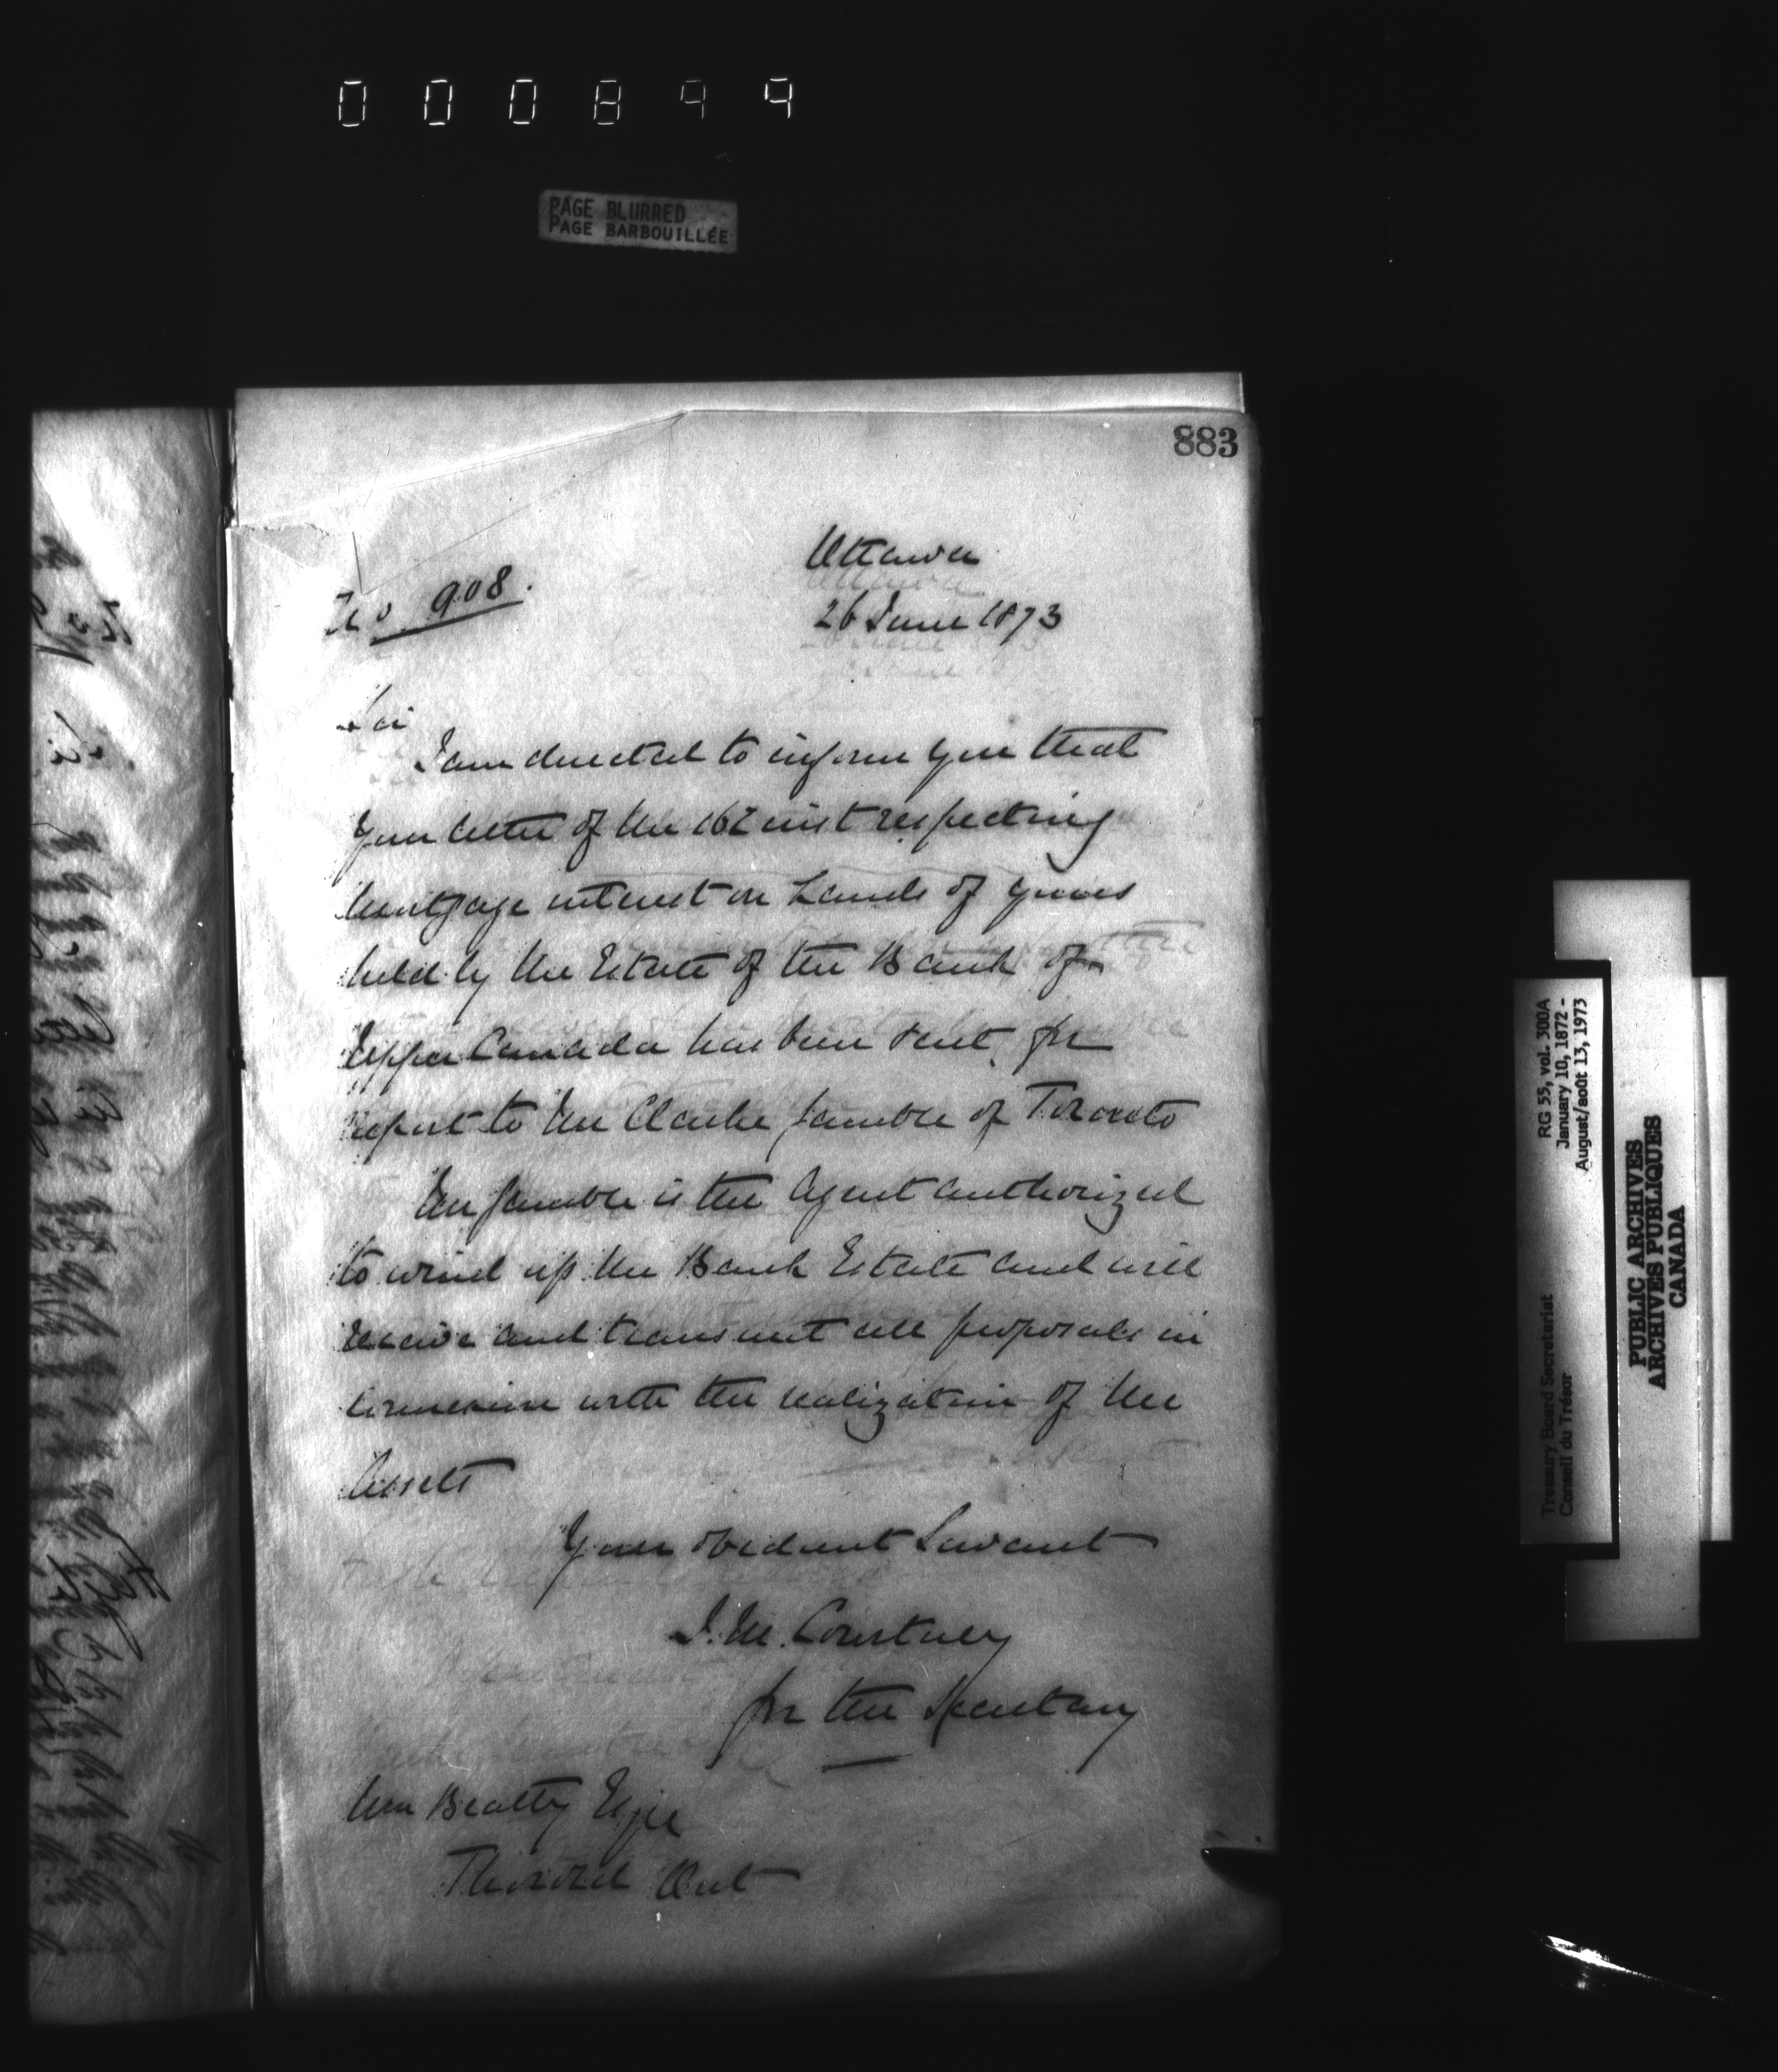 000899
PAGE BLURRED
PAGE BARBOUILLÉE
883
Ottawa
No 908.
26 June 1873
Sir
I am directed to inform you that
your letter of the 16th inst respecting
Mortgage interest on Lands of yours
held by the Estate of the Bank of
Upper Canada has been sent for
report to Mr Clarke Gamble of Toronto
Mr Gamble is the Agent authorized
to wind up the Bank Estate and will
receive and transmit all proposals in
connexion with the realization of the
Assets
Your obedient Servant
J. M. Courtney
for the Secretary
Wm Beatty Esqre
Thorold Ont
RG 55, vol. 300A
January 10, 1872 -
August/août 13, 1973
Treasury Board Secretariat
Conseil du Trésor
PUBLIC ARCHIVES
ARCHIVES PUBLIQUES
CANADA